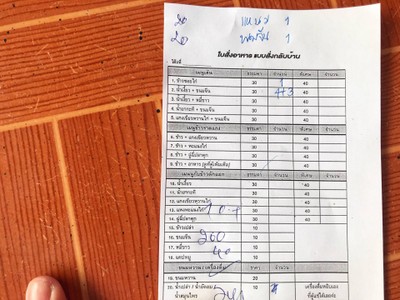 20 แคบหมู 1
20 ขนมจีน 1
ใบสั่งอาหาร แบบสั่งกลับบ้าน
โต๊ะที่
เมนูเส้น ธรรมดา จำนวน พิเศษ จำนวน
1. ข้าวซอยไก่ 30 40
2. น้ำเงี้ยว + ขนมจีน 30 4+3 40
3. น้ำเงี้ยว + หมี่ขาว 30 40
4. น้ำยากะทิ + ขนมจีน 30 40
5. แกงเขียวหวานไก่ + ขนมจีน 30 40
เมนูข้าวราดแกง ธรรมดา จำนวน พิเศษ จำนวน
6. ข้าว + แกงเขียวหวาน 30 40
7. ข้าว + พะแนงไก่ 30 40
8. ข้าว + ฉู่ฉี่ปลาทู 30 40
9. ข้าว + อาหาร 30 40
ธรรมดา จำนวน พิเศษ จำนวน
10. น้ำเงี้ยว 30 40
11. น้ำกะทิ 30 40
12. แกงเขียวหวานไก่ 30 40
13. แพนงไก่ 30 40
14. ฉู่ฉี่ปลาทู 30 40
15. ข้าวเปล่า 10
16. ขนมจีน 10 200
17. หมี่ขาว 10
18. แคบหมู 10
ขนมหวาน / เครื่องดื่ม ราคา จำนวน
20
10 เครื่องดื่มหยิบเอง
น้ำสมุนไพร